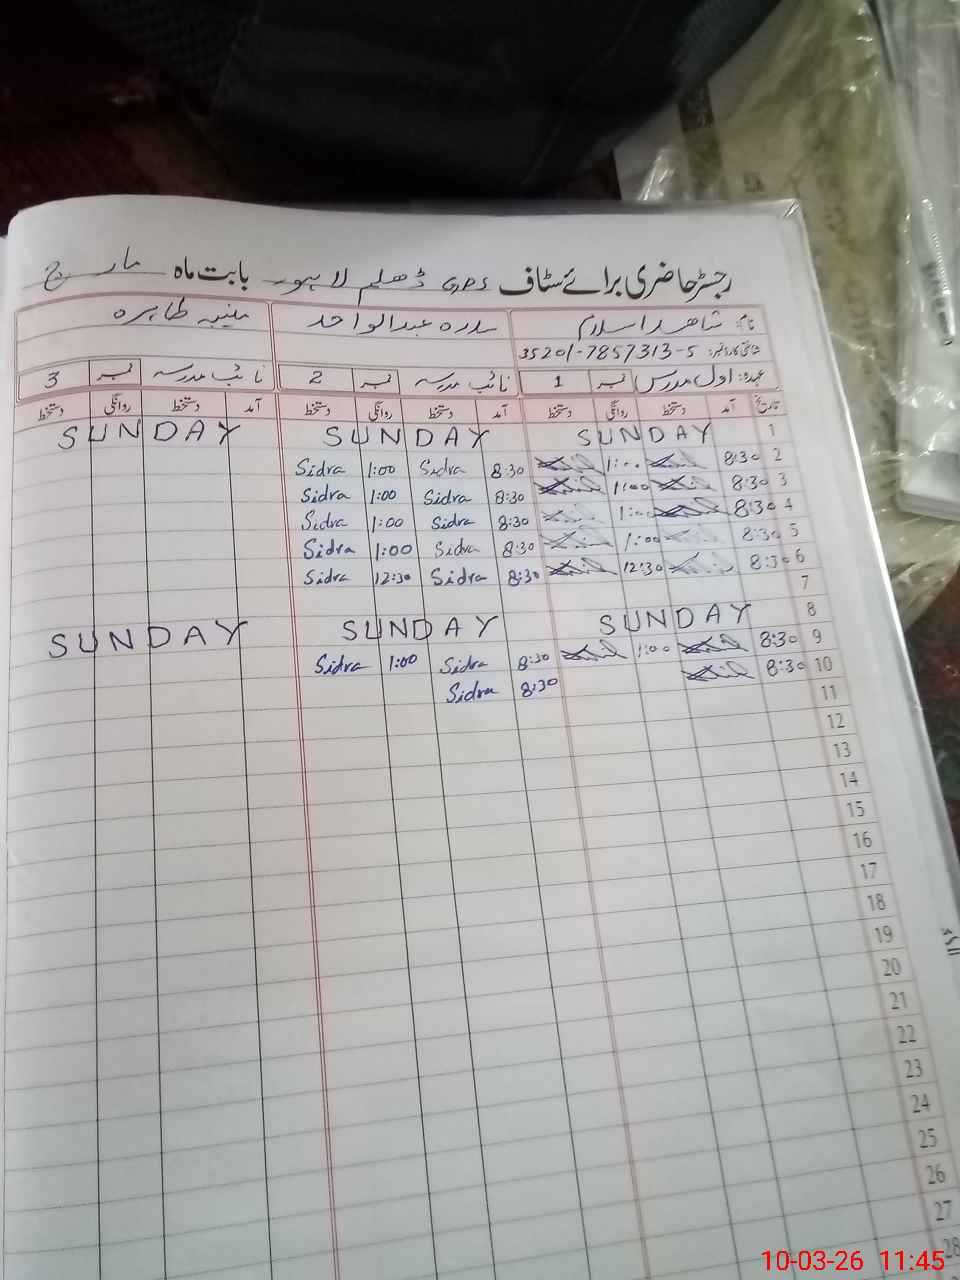 رجسٹر حاضری برائے سٹاف GPS ڈھلم لاہور بابت ماہ مارچ
نام: شاھد اسلام سدرہ عبدالواحد طاہرہ
شناختی کارڈ نمبر: 35201-7857313-5
عہدہ: اول مدرس نمبر 1 نائب مدرسہ نمبر 2 نائب مدرسہ نمبر 3
تاریخ آمد دستخط روانگی دستخط آمد دستخط روانگی دستخط آمد دستخط روانگی دستخط
1 SUNDAY SUNDAY SUNDAY
2 8:30 1:00 8:30 Sidra 1:00 Sidra
3 8:30 1:00 8:30 Sidra 1:00 Sidra
4 8:30 1:00 8:30 Sidra 1:00 Sidra
5 8:30 1:00 8:30 Sidra 1:00 Sidra
6 8:30 12:30 8:30 Sidra 12:30 Sidra
7
8 SUNDAY SUNDAY SUNDAY
9 8:30 1:00 8:30 Sidra 1:00 Sidra
10 8:30 8:30 Sidra
11
12
13
14
15
16
17
18
19
20
21
22
23
24
25
26
27
28
10-03-26 11:45